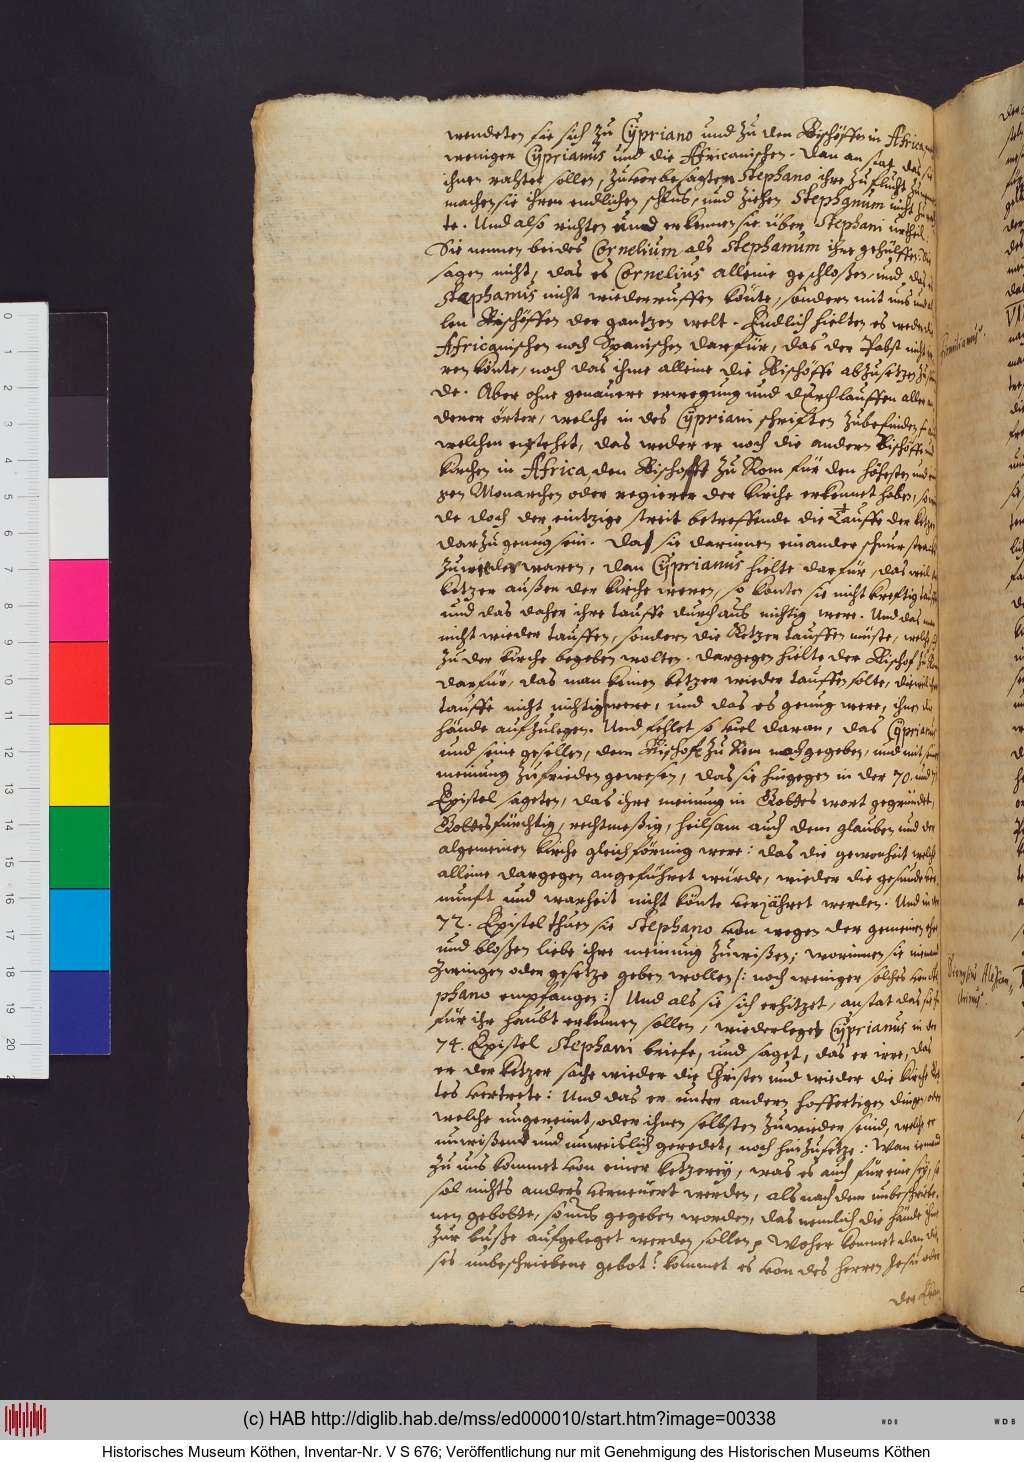 wendeten sie sich zu Cypriano und zu den Bischöffen in Africa
weniger Cyprianus und die Africanischen. Dan an stat das sie
ihnen rahten sollen, zu vorbesagten Stephano ihre zuflucht zu
machen sie ihren endlichen schlus, und ziehen Stephanum nicht
te. Und also richten und erkennen sie über Stephani urtheil.
Sie nennen beides Cornelium als Stephanum ihre gehülffen: Sie
sagen nicht, das es Cornelius alleine geschloßen, und das
Stephanus nicht wiederruffen könte, sondern mit uns und al
len Bischöffen der gantzen welt. Endlich hielten es weder die
Africanischen noch Spanischen darfür, das der Pabst nicht ir
ren könte, noch das ihme alleine die Bischöffe abzusetzen
de. Aber ohne genauere erwegung und durchlauffen aller an
derer örter, welche in des Cypriani schriften zubefinden
welchen entstehet, das weder er noch die andern Bischöffe und
kirchen in Africa den Bischoff zu Rom für den höhesten und
gen Monarchen oder regierer der kirche erkennet haben, so
de doch der eintzige streit betreffende die Tauffe der ketzer
darzu genug sein. Das sie darinnen einander schnur stracks
zuwieder waren, dan Cyprianus hielte darfür, das weil die
ketzer außer der kirche weren, so konten sie nicht kreftig tauffen
und das daher ihre tauffe durchaus nichtig were. Und das man
nicht wieder tauffen, sondern die Ketzer tauffen müste, welche sich
zu der kirche begeben wolten. dargegen hielte der Bischof zu Rom
darfür, das man keinen ketzer wieder tauffen solte, dieweil ihre
tauffe nicht nichtig were, und das es genug were, ihnen die
hände aufzulegen. Und fehlet so viel daran, das Cyprianus
und seine gesellen, dem Bischoff zu Rom nachgegeben, und mit seiner
meinung zufrieden gewesen, das sie hingegen in der 70. und 71
Epistel sageten, das ihre meinung in Gottes wort gegründet,
Gottesfürchtig, rechtmeßig, heilsam auch dem glauben und der
algemeinen kirche gleichförmig were: das die gewonheit welche
alleine dargegen angeführet würde, wieder die gesunde ver
nunft und warheit nicht könte verjähret werden. Und in der
72. Epistel thuen sie Stephano von wegen der gemeinen ehre
und bloßen liebe ihre meinung zuwißen; worinnen sie niemand
zwingen oder gesetze geben wollen /: noch weniger solches von Ste
phano empfangen :/ Und als sie sich erhitzet, anstat das sie ihn
für ihr haubt erkennen sollen, wiederleget Cyprianus in der
74. Epistel Stephani briefe, und saget, das er irre, das
er der ketzer sache wieder die Christen und wieder die kirche Got
tes vertrete: Und das er unter andern hoffertigen dingen, oder
welche ungereimt, oder ihnen selbsten zuwieder seind, welche er
unwißend und unweislich geredet, noch hinzusetze: Wan iemand
zu uns kommet von einer ketzerey, was es auch für eine sey, so
sol nichts anders verneuert werden, als nach dem unbeschriebe,
nen gebotte, so uns gegeben worden, das nemlich die hände ihm
zur buße aufgeleget werden sollen. Woher kommet dan die
ses unbeschriebene gebot? kommet es von des herren Jesu oder
der
Firmilianus.
Dionysius Alexan,
drinus.
VII
0 1 2 3 4 5 6 7 8 9 10 11 12 13 14 15 16 17 18 19 20
(c) HAB http://diglib.hab.de/mss/ed000010/start.htm?image=00338
WDB
WDB
Historisches Museum Köthen, Inventar-Nr. V S 676; Veröffentlichung nur mit Genehmigung des Historischen Museums Köthen